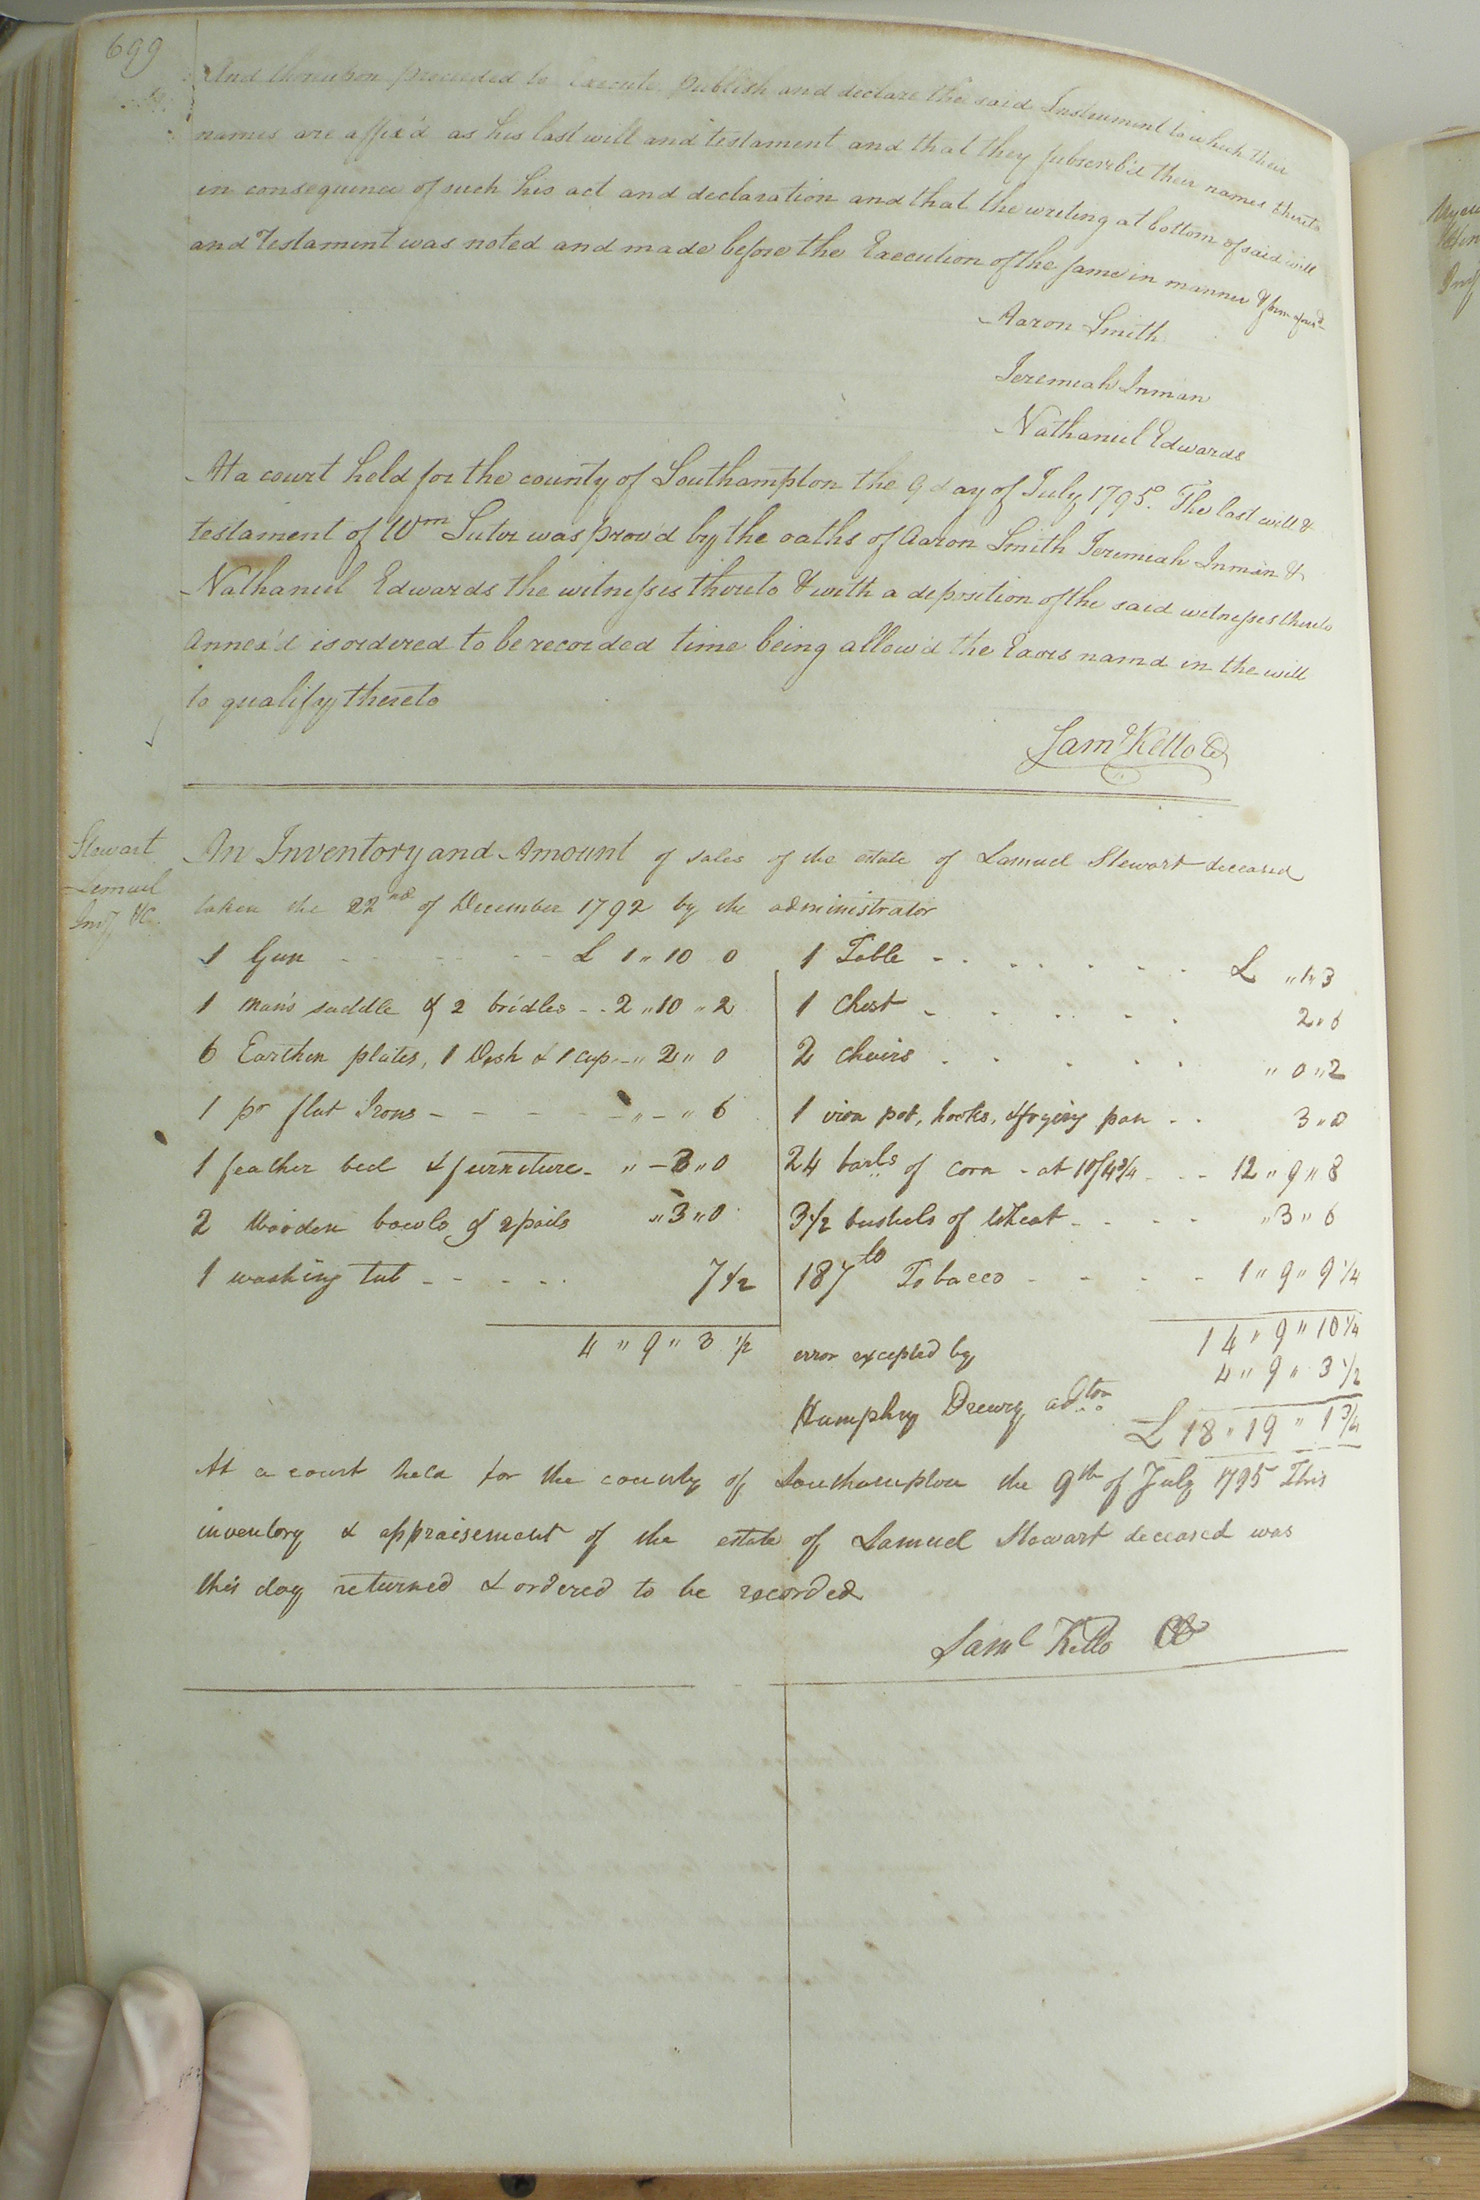 699
And thereupon proceeded to Execute Publish and declare the said Instrument to which their
names are affix'd as his last will and testament and that they subscrib'd their names thereto
in consequence of such his act and declaration and that the writing at bottom of said will
and Testament was noted and made before the Execution of the same in manner & form afores'd
Aaron Smith
Jeremiah Inman
Nathaniel Edwards
At a court held for the county of Southampton the 9 day of July 1795. The last will &
testament of Wm Sutor was prov'd by the oaths of Aaron Smith Jeremiah Inman &
Nathaniel Edwards the witnesses thereto & with a deposition of the said witnesses thereto
Annex'd is ordered to be recorded time being allow'd the Exors namd in the will
to qualify thereto
Saml Kello Cl
Stewart
Lemuel
Invy &C.
An Inventory and Amount of sales of the estate of Lamuel Stewart deceased
taken the 22nd of December 1792 by the administrator
1 Gun - - - - £ 1 " 10 0
1 man's saddle & 2 bridles - - 2 " 10 " 2
6 Earthen plates, 1 Dish & 1 cup - " 2 " 0
1 pr flat Irons - - - - " - " 6
1 feather bed & furniture - " - 3 " 0
2 Wooden bowls & 2 pails " 3 " 0
1 washing tub - - - - 7 1/2
4 " 9 " 3 1/2
1 Table - - - - - - £ " 1 " 3
1 Chest - - - - - 2 " 6
2 chairs - - - - - " 0 " 2
1 iron pot, hooks, & frying pan - - 3 " 0
24 barls of corn - at 10/4 3/4 - - - 12 " 9 " 8
3 1/2 bushels of Wheat - - - - " 3 " 6
187 lb Tobacco - - - - 1 " 9 " 9 1/4
14 " 9 " 10 1/4
error excepted by 4 " 9 " 3 1/2
Humphry Drewry adtor £ 18 " 19 " 1 3/4
At a court held for the county of Southampton the 9th of July 1795 This
inventory & appraisement of the estate of Lamuel Stewart deceased was
this day returned & ordered to be recorded
Saml Kello CC